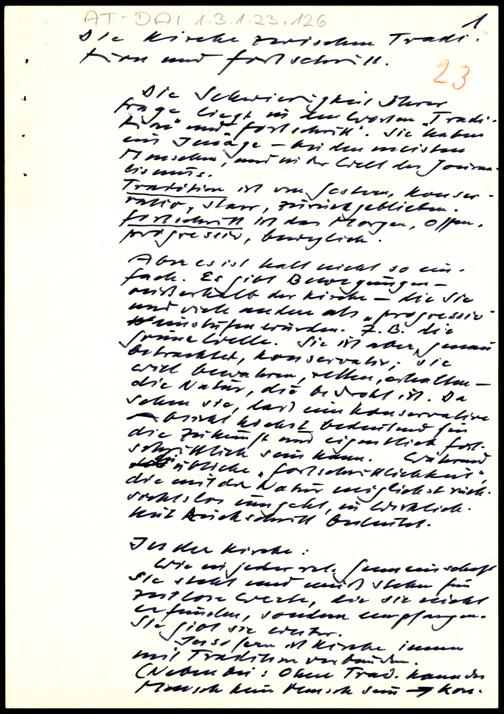 AT-DAI 1.3.1.23.126
1
Die Kirche zwischen Tradi-
tion und Fortschritt.
23
Die Schwierigkeit Ihrer
Frage liegt in den Worten "Tradi-
tion" und "Fortschritt". Sie haben
ein Image – bei den meisten
Menschen, und in der Welt des Journa-
lismus.
Tradition ist von gestern, konser-
vativ, starr, zurückgeblieben.
Fortschritt ist das Morgen, offen,
progressiv, beweglich.
Aber es ist halt nicht so ein-
fach. Es gibt Bewegungen –
außerhalb der Kirche – die Sie
und viele andere als "progressiv"
einstufen würden. Z.B. die
grüne Welle. Sie ist aber, genau
betrachtet, konservativ; sie
will bewahren, retten, erhalten –
die Natur, die bedroht ist. Da
sehen Sie, daß eine konservative
Absicht höchst bedeutend für
die Zukunft und eigentlich fort-
schrittlich sein kann. Während
übliche "Fortschrittlichkeit",
die mit der Natur möglichst rück-
sichtslos umgeht, in Wirklich-
keit Rückschritt bedeutet.
In der Kirche:
Wie in jeder rel. Gemeinschaft
Sie steht und muß stehen für
zeitlose Werte, die sie nicht
erfunden, sondern empfangen.
Sie gibt sie weiter.
Insofern ist Kirche immer
mit Tradition verbunden.
(Nebenbei: Ohne Trad. kann der
Mensch kein Mensch sein → Kon-